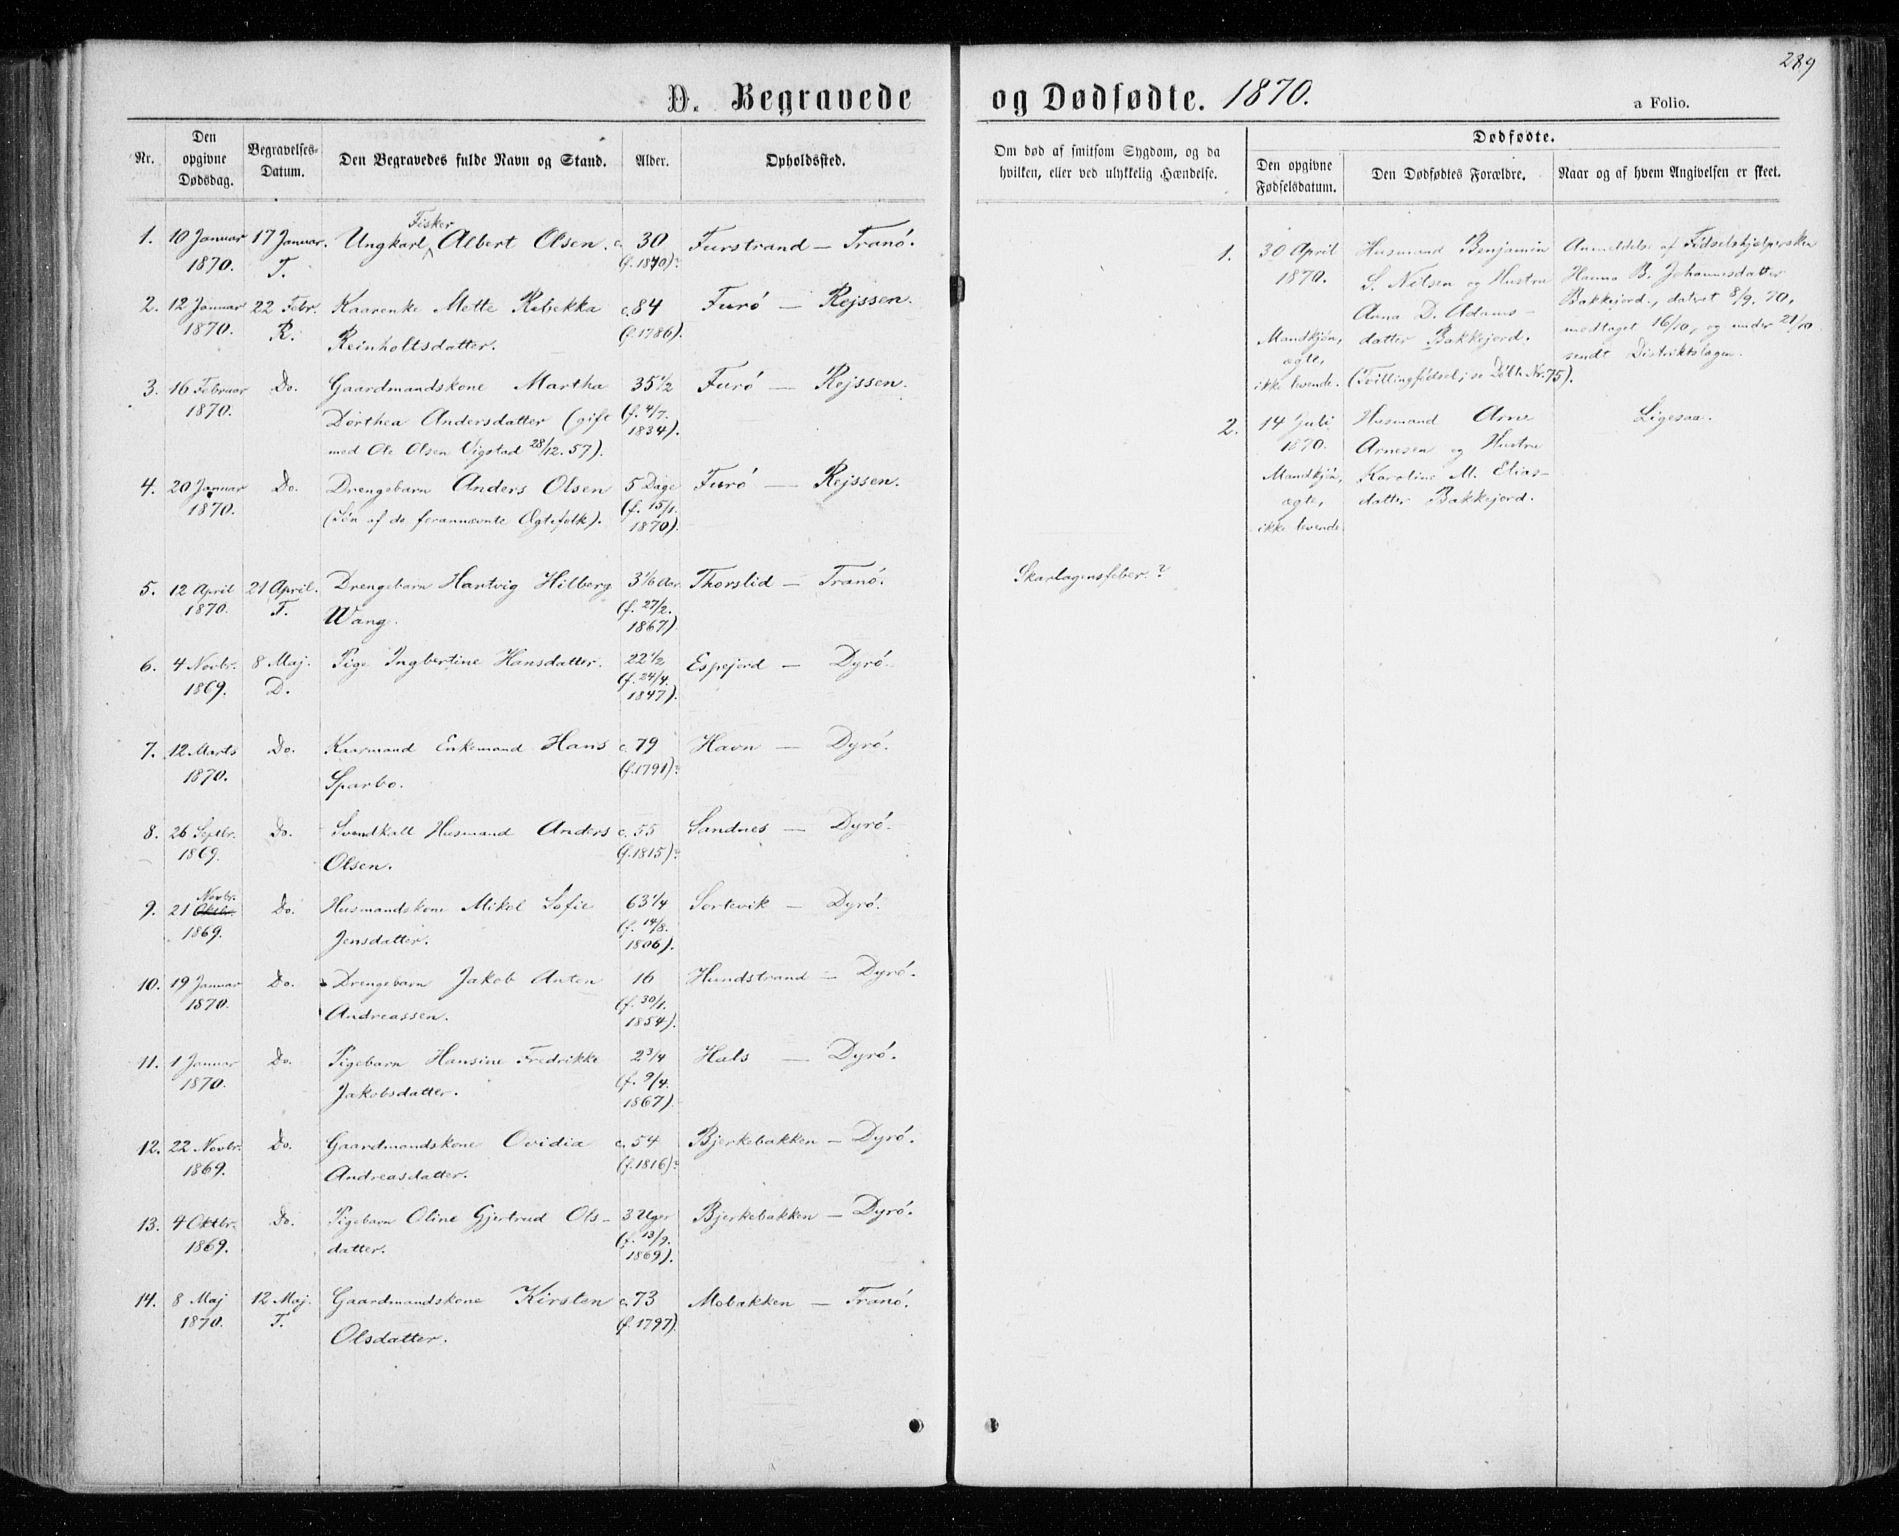 289
D. Begravede og Dødfødte. 1870.
a Folio.
Nr.
Den opgivne Dødsdag.
Begravelses-Datum.
Den Begravedes fulde Navn og Stand.
Alder.
Opholdssted.
Om død af smitsom Sygdom, og da hvilken, eller ved ulykkelig Hændelse.
Dødfødte.
Den opgivne Fødselsdatum.
Den Dødfødtes Forældre.
Naar og af hvem Angivelsen er skeet.
Fisker
1. 10 Januar 17 Januar. Ungkarl Albert Olsen. c. 30 Furstrand — Tranö.
1870. T. (f. 1840)?
2. 12 Januar 22 Febr. Kaarenke Mette Rebekka c. 84 Furö — Rejssen.
1870. R. Reinholtsdatter. (f. 1786).
3. 16 Februar Do. Gaardmandskone Martha 35 1/2 Furö — Rejssen.
1870. Dorthea Andersdatter (gift (f. 4/7.
med Ole Olsen Vigstad 28/12. 57). 1834).
4. 20 Januar Do. Drengebarn Anders Olsen 5 Dage Furö — Rejssen.
1870. (Sön af de forannævnte Ægtefolk). (f. 15/1. 1870).
5. 12 April 21 April. Drengebarn Hartvig Hilberg 3 1/6 Aar Thorslid — Tranö. Skarlagensfeber?
1870. T. Wang. (f. 27/2. 1867).
6. 4 Novbr. 8 Maj. Pige Ingbertine Hansdatter. 22 1/2 Espejord — Dyrö.
1869. D. (f. 24/4. 1847).
7. 12 Marts Do. Kaarmand Enkemand Hans c. 79 Havn — Dyrö.
1870. Sparbo. (f. 1791)?
8. 26 Septbr. Do. Svendkall Husmand Anders c. 55 Sandnes — Dyrö.
1869. Olsen. (f. 1815)?
Novbr.
9. 21 Oktbr. Do. Husmandskone Mikel Sofie 63 1/4 Sortevik — Dyrö.
1869. Jensdatter. (f. 14/8. 1806).
10. 19 Januar Do. Drengebarn Jakob Anton 16 Hundstrand — Dyrö.
1870. Andreassen. (f. 30/1. 1854).
11. 1 Januar Do. Pigebarn Hansine Fredrikke 2 3/4 Hals — Dyrö.
1870. Jakobsdatter. (f. 9/4. 1867).
12. 22 Novbr. Do. Gaardmandskone Ovidia c. 54 Bjerkebakken — Dyrö.
1869. Andreasdatter. (f. 1816)?
13. 4 Oktbr. Do. Pigebarn Oline Gjertrud Ols- 3 Uger Bjerkebakken — Dyrö.
1869. datter. (f. 13/9. 1869).
14. 8 Maj 12 Maj. Gaardmandskone Kirsten c. 73 Mobakken — Tranö.
1870. T. Olsdatter. (f. 1797).
1. 30 April Husmand Benjamin Anmeldelse af Födselshjelpersken
1870. S. Nilsen og Hustru Hanna B. Johannesdatter
Anna D. Adams- Bakkejord, datert 8/9. 70,
Mandkjön, datter Bakkejord. modtaget 16/10, og under 21/10
ægte, sendt Distriktslægen.
ikke levende. (Tvillingfödsel; se Döbte Nr. 75).
2. 14 Juli Husmand Arne Ligesaa.
1870. Arnesen og Hustru
Mandkjön, Karoline M. Elias-
ægte, datter Bakkejord.
ikke levende.